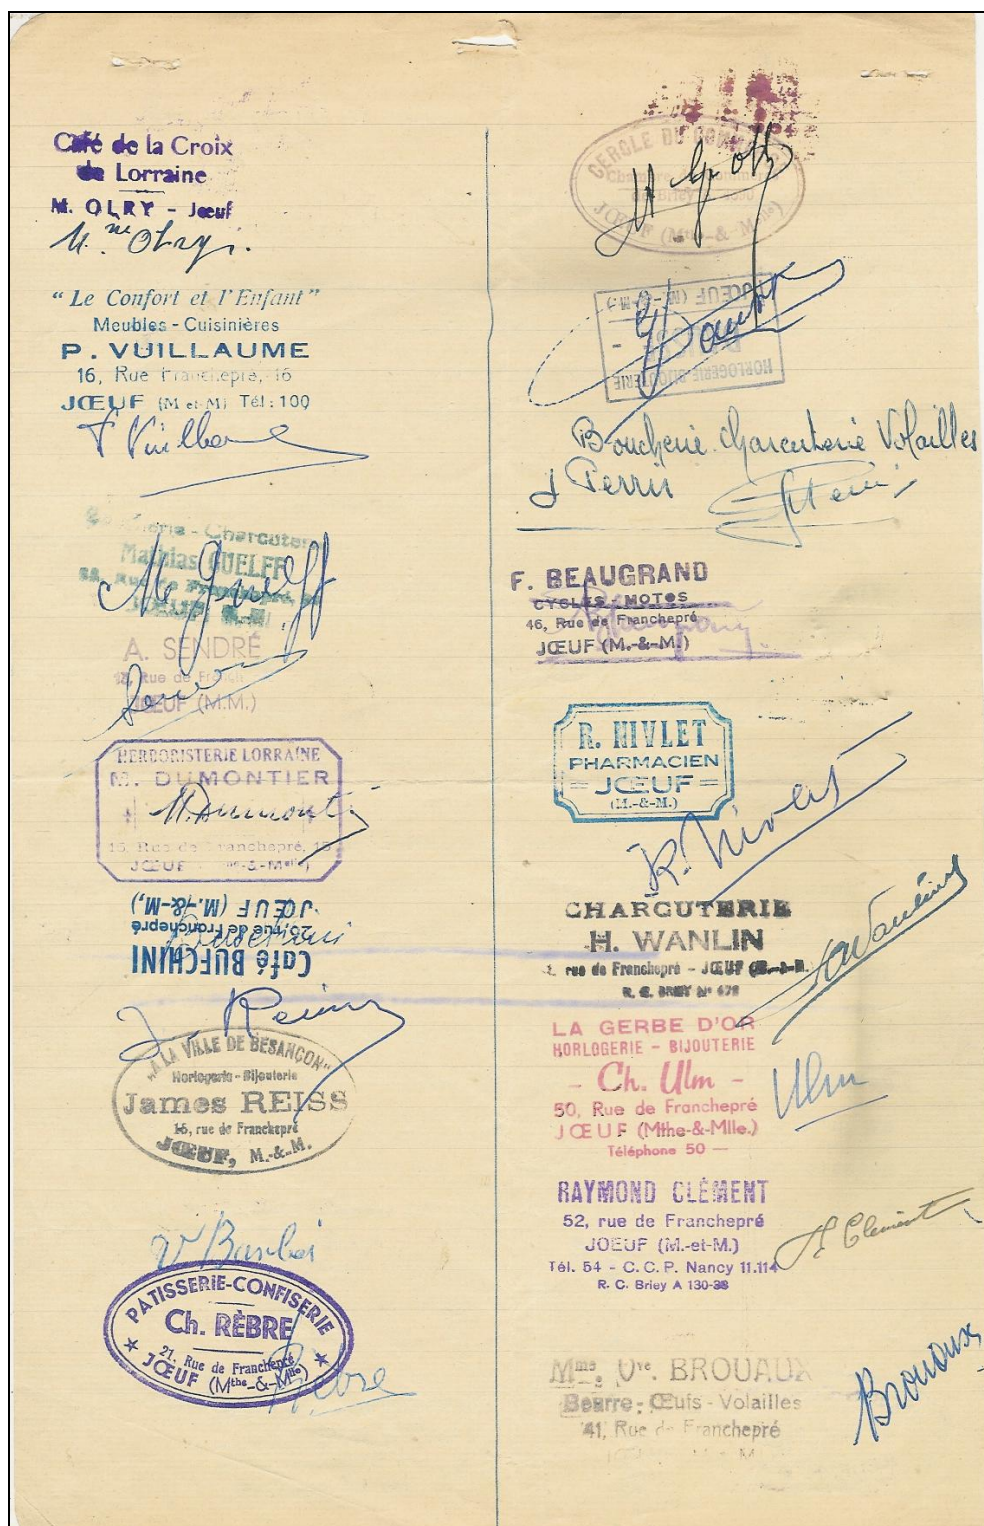 Café de la Croix
de Lorraine
M. OLRY - Jœuf
"Le Confort et l'Enfant"
Meubles - Cuisinières
P. VUILLAUME
16, Rue Franchepré, 16
JŒUF (M et M) Tél : 100
Charcuterie
Mathias GUELFF
Rue de Franchepré
JŒUF
M. Guelff
A. SENDRÉ
Rue de Franch
JŒUF (M.M.)
HERBORISTERIE LORRAINE
M. DUMONTIER
M. Dumonti
15, Rue de Franchepré, 15
JŒUF
Café BUFCHINI
26, rue de Franchepré
JŒUF (M.-&-M.)
"A LA VILLE DE BESANÇON"
Horlogerie - Bijouterie
James REISS
15, rue de Franchepré
JŒUF, M.-&-M.
PATISSERIE-CONFISERIE
Ch. RÈBRE
21, Rue de Franchepré
JŒUF (Mthe-&-Mlle)
Rèbre
CERCLE DU
JŒUF (Mthe-&-Mlle)
HORLOGERIE-BIJOUTERIE
JŒUF (M.-&-M.)
Boucherie Charcuterie Volailles
F. BEAUGRAND
CYCLES - MOTOS
46, Rue de Franchepré
JŒUF (M.-&-M.)
R. NIVLET
PHARMACIEN
= JŒUF =
(M.-&-M.)
R. Nivlet
CHARCUTERIE
H. WANLIN
rue de Franchepré - JŒUF
LA GERBE D'OR
HORLOGERIE - BIJOUTERIE
- Ch. Ulm -
50, Rue de Franchepré
JŒUF (Mthe-&-Mlle.)
Téléphone 50 —
Ulm
RAYMOND CLÉMENT
52, rue de Franchepré
JOEUF (M.-et-M.)
Tél. 54 - C.C.P. Nancy 11.114
R. C. Briey A 130-38
Clément
Mme Vve BROUAUX
Beurre - Œufs - Volailles
41, Rue de Franchepré
Brouaux